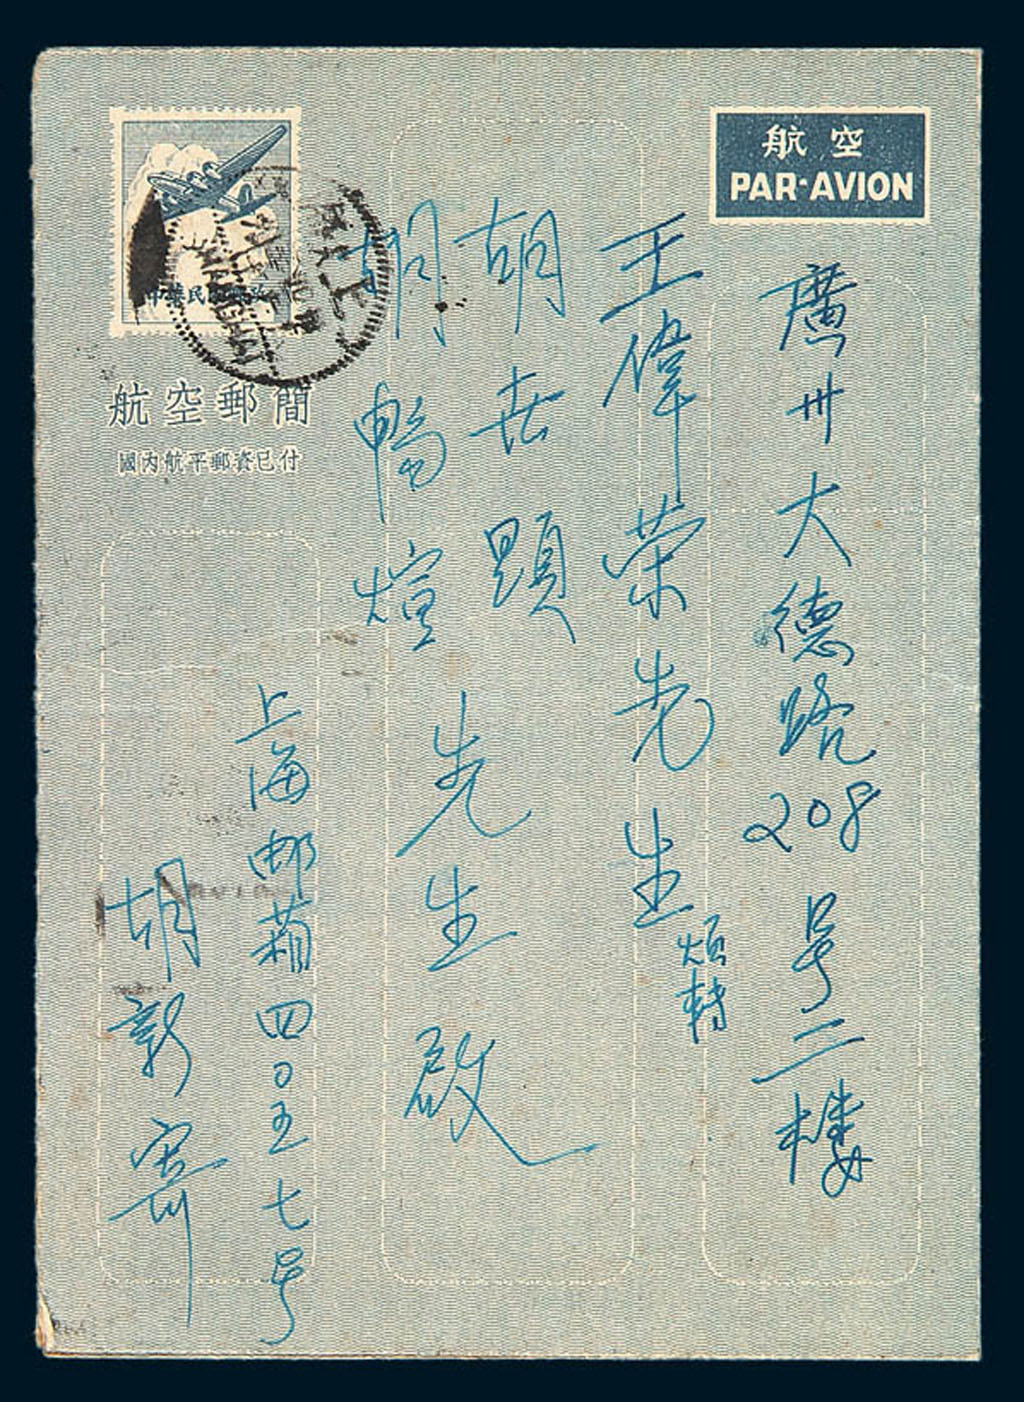 航空
PAR·AVION
廣州大德路208号二樓
王偉荣先生 煩轉
胡去顕
胡暢煊先生啟
中華民國郵政
航空郵簡
國內航平郵資已付
上海邮箱四〇五七号
胡新寄
SHANGHAI